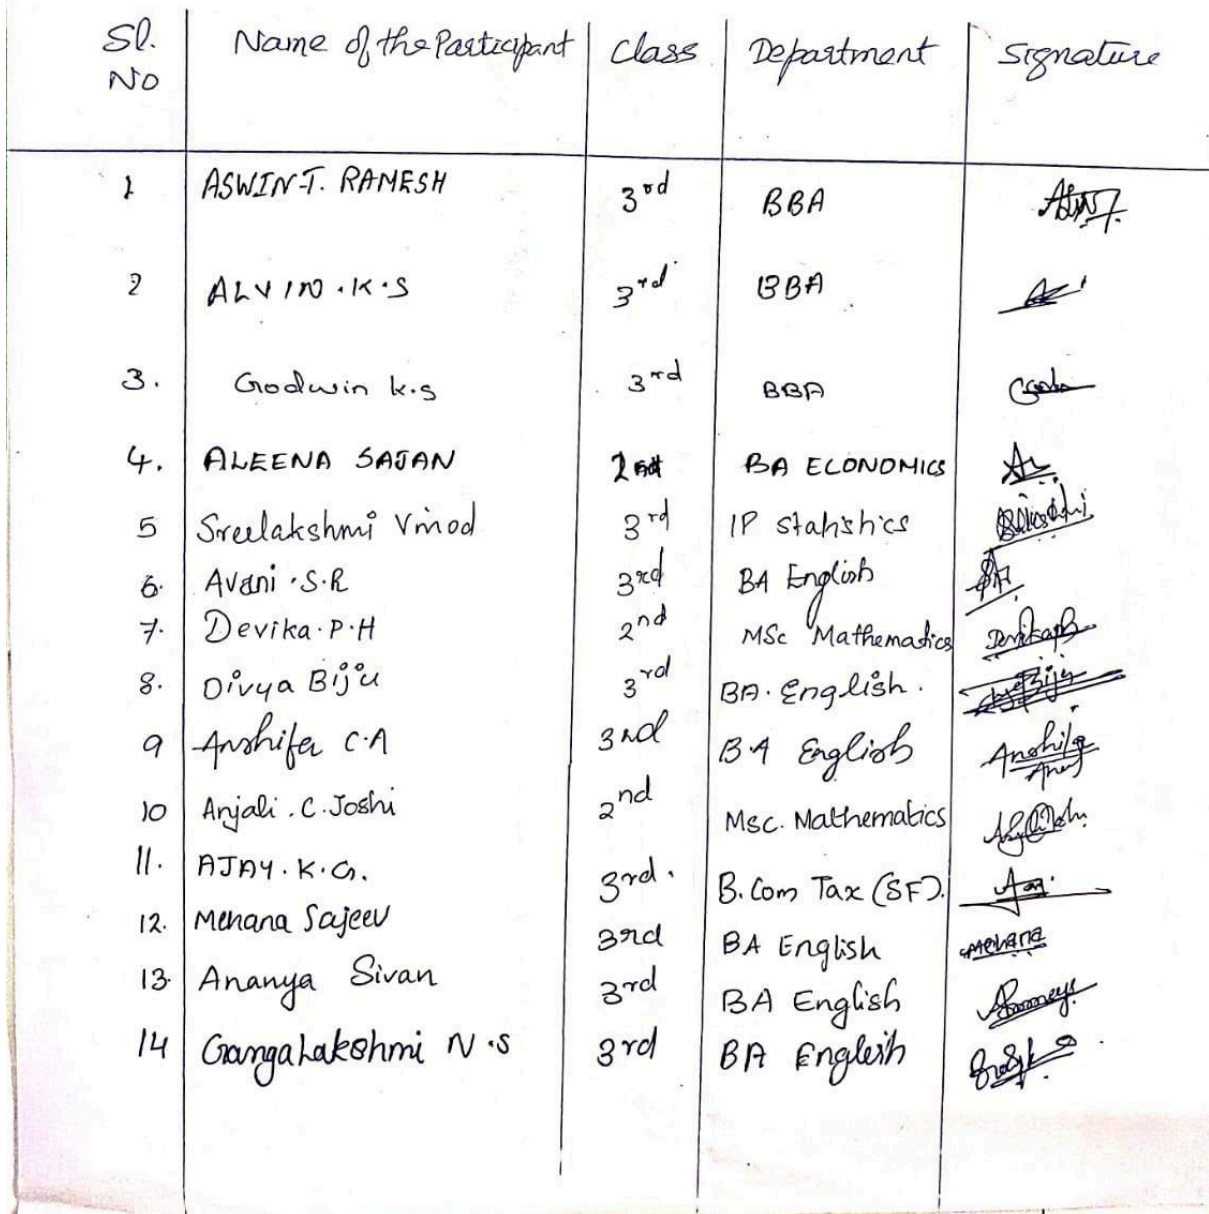 Sl. No Name of the Participant Class Department Signature
1 ASWIN.T. RAMESH 3rd BBA
2 ALVIN.K.S 3rd BBA
3. Godwin k.s 3rd BBA
4. ALEENA SAJAN 2nd BA ECONOMICS
5 Sreelakshmi Vinod 3rd IP Statistics
6. Avani.S.R 3rd BA English
7. Devika.P.H 2nd MSc Mathematics Devikaph
8. Divya Biju 3rd BA. English.
9 Anshifa C.A 3rd B.A English Anshifa
10 Anjali.C.Joshi 2nd Msc. Mathematics
11. AJAY.K.G. 3rd. B.Com Tax (SF).
12. Menana Sajeev 3rd BA English Menana
13. Ananya Sivan 3rd BA English
14 GangaLakshmi N.S 3rd BA English